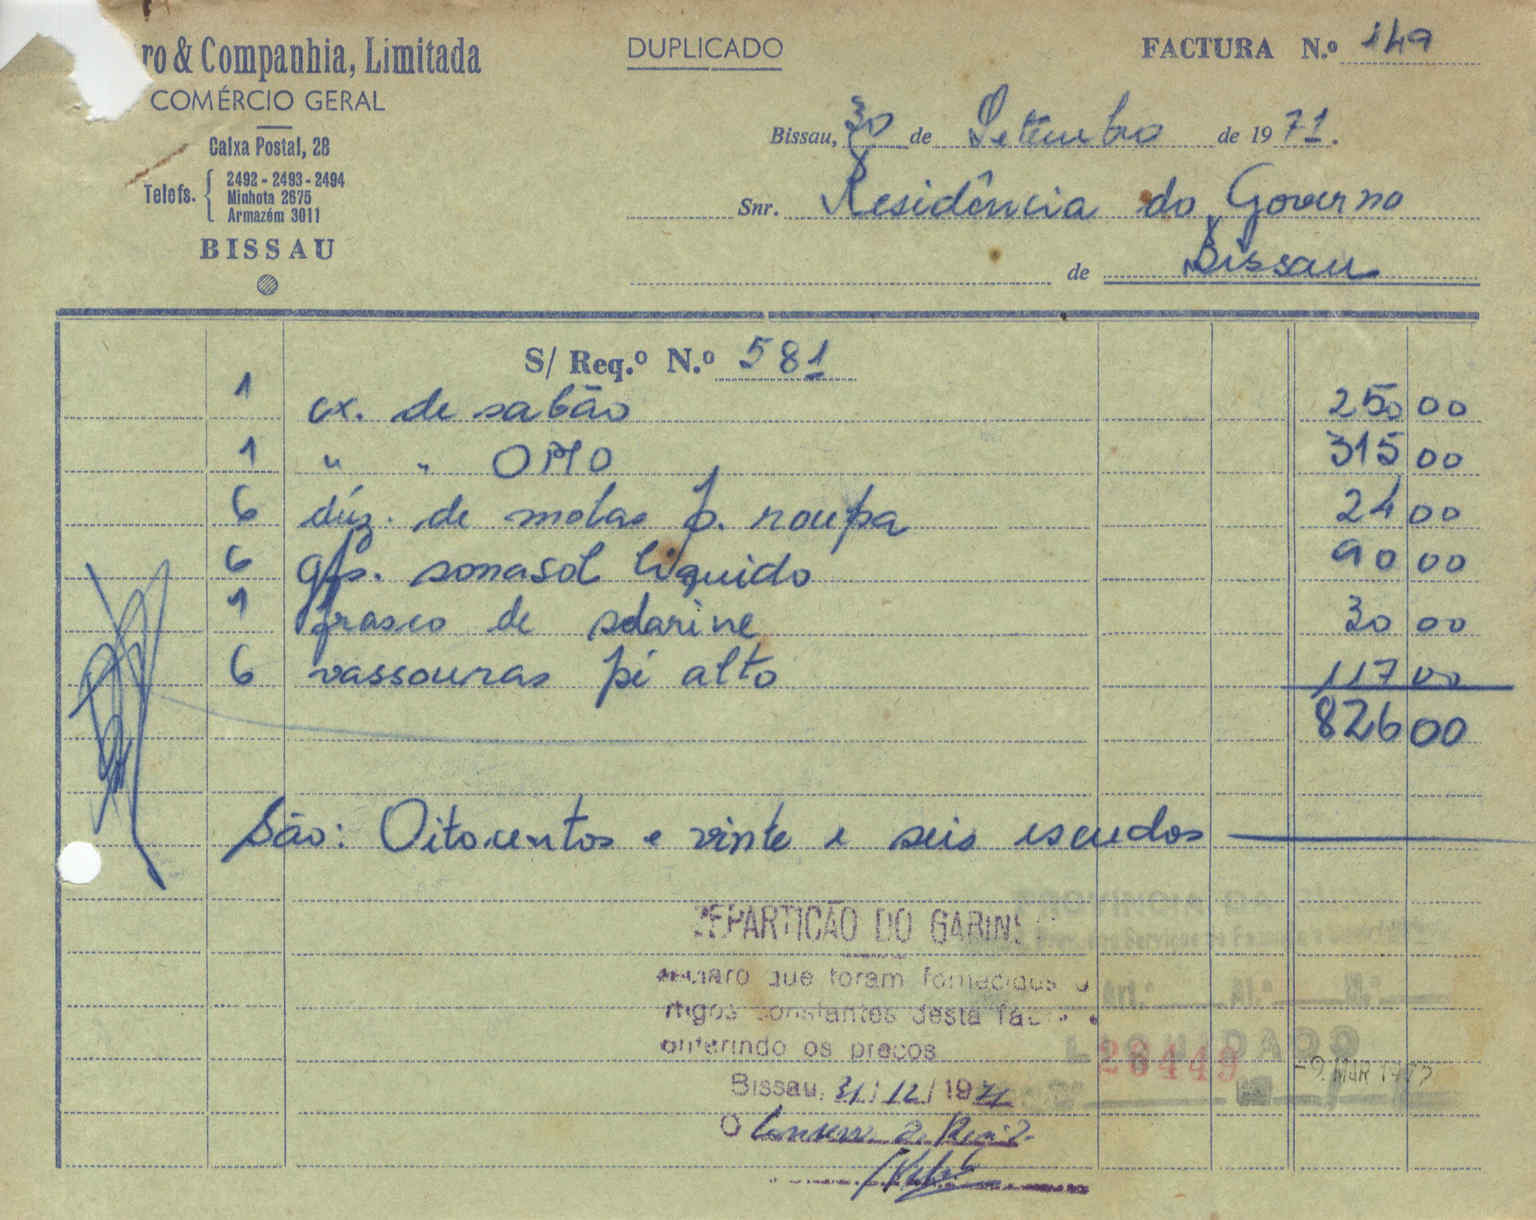 ro & Companhia, Limitada
COMÉRCIO GERAL
Caixa Postal, 28
Telefs. 2492 - 2493 - 2494
Minhota 2675
Armazém 3011
BISSAU
DUPLICADO
FACTURA N.º 149
Bissau, 30 de Setembro de 1971.
Snr. Residência do Governo
de Bissau
S/ Req.º N.º 581
1 cx. de sabão 250 00
1 " " OMO 315 00
6 dúz. de molas p. roupa 24 00
6 gfs. sonasol liquido 90 00
1 frasco de sdarine 30 00
6 vassouras pé alto 117 00
826 00
São: Oitocentos e vinte e seis escudos
REPARTIÇÃO DO GABINE
que foram fornecidos
rtigos constantes desta fac
onferindo os preços
Bissau, 31/12/1971
O
PROVINCIA DA
LIQUIDADO
26449
-9. MAR 197